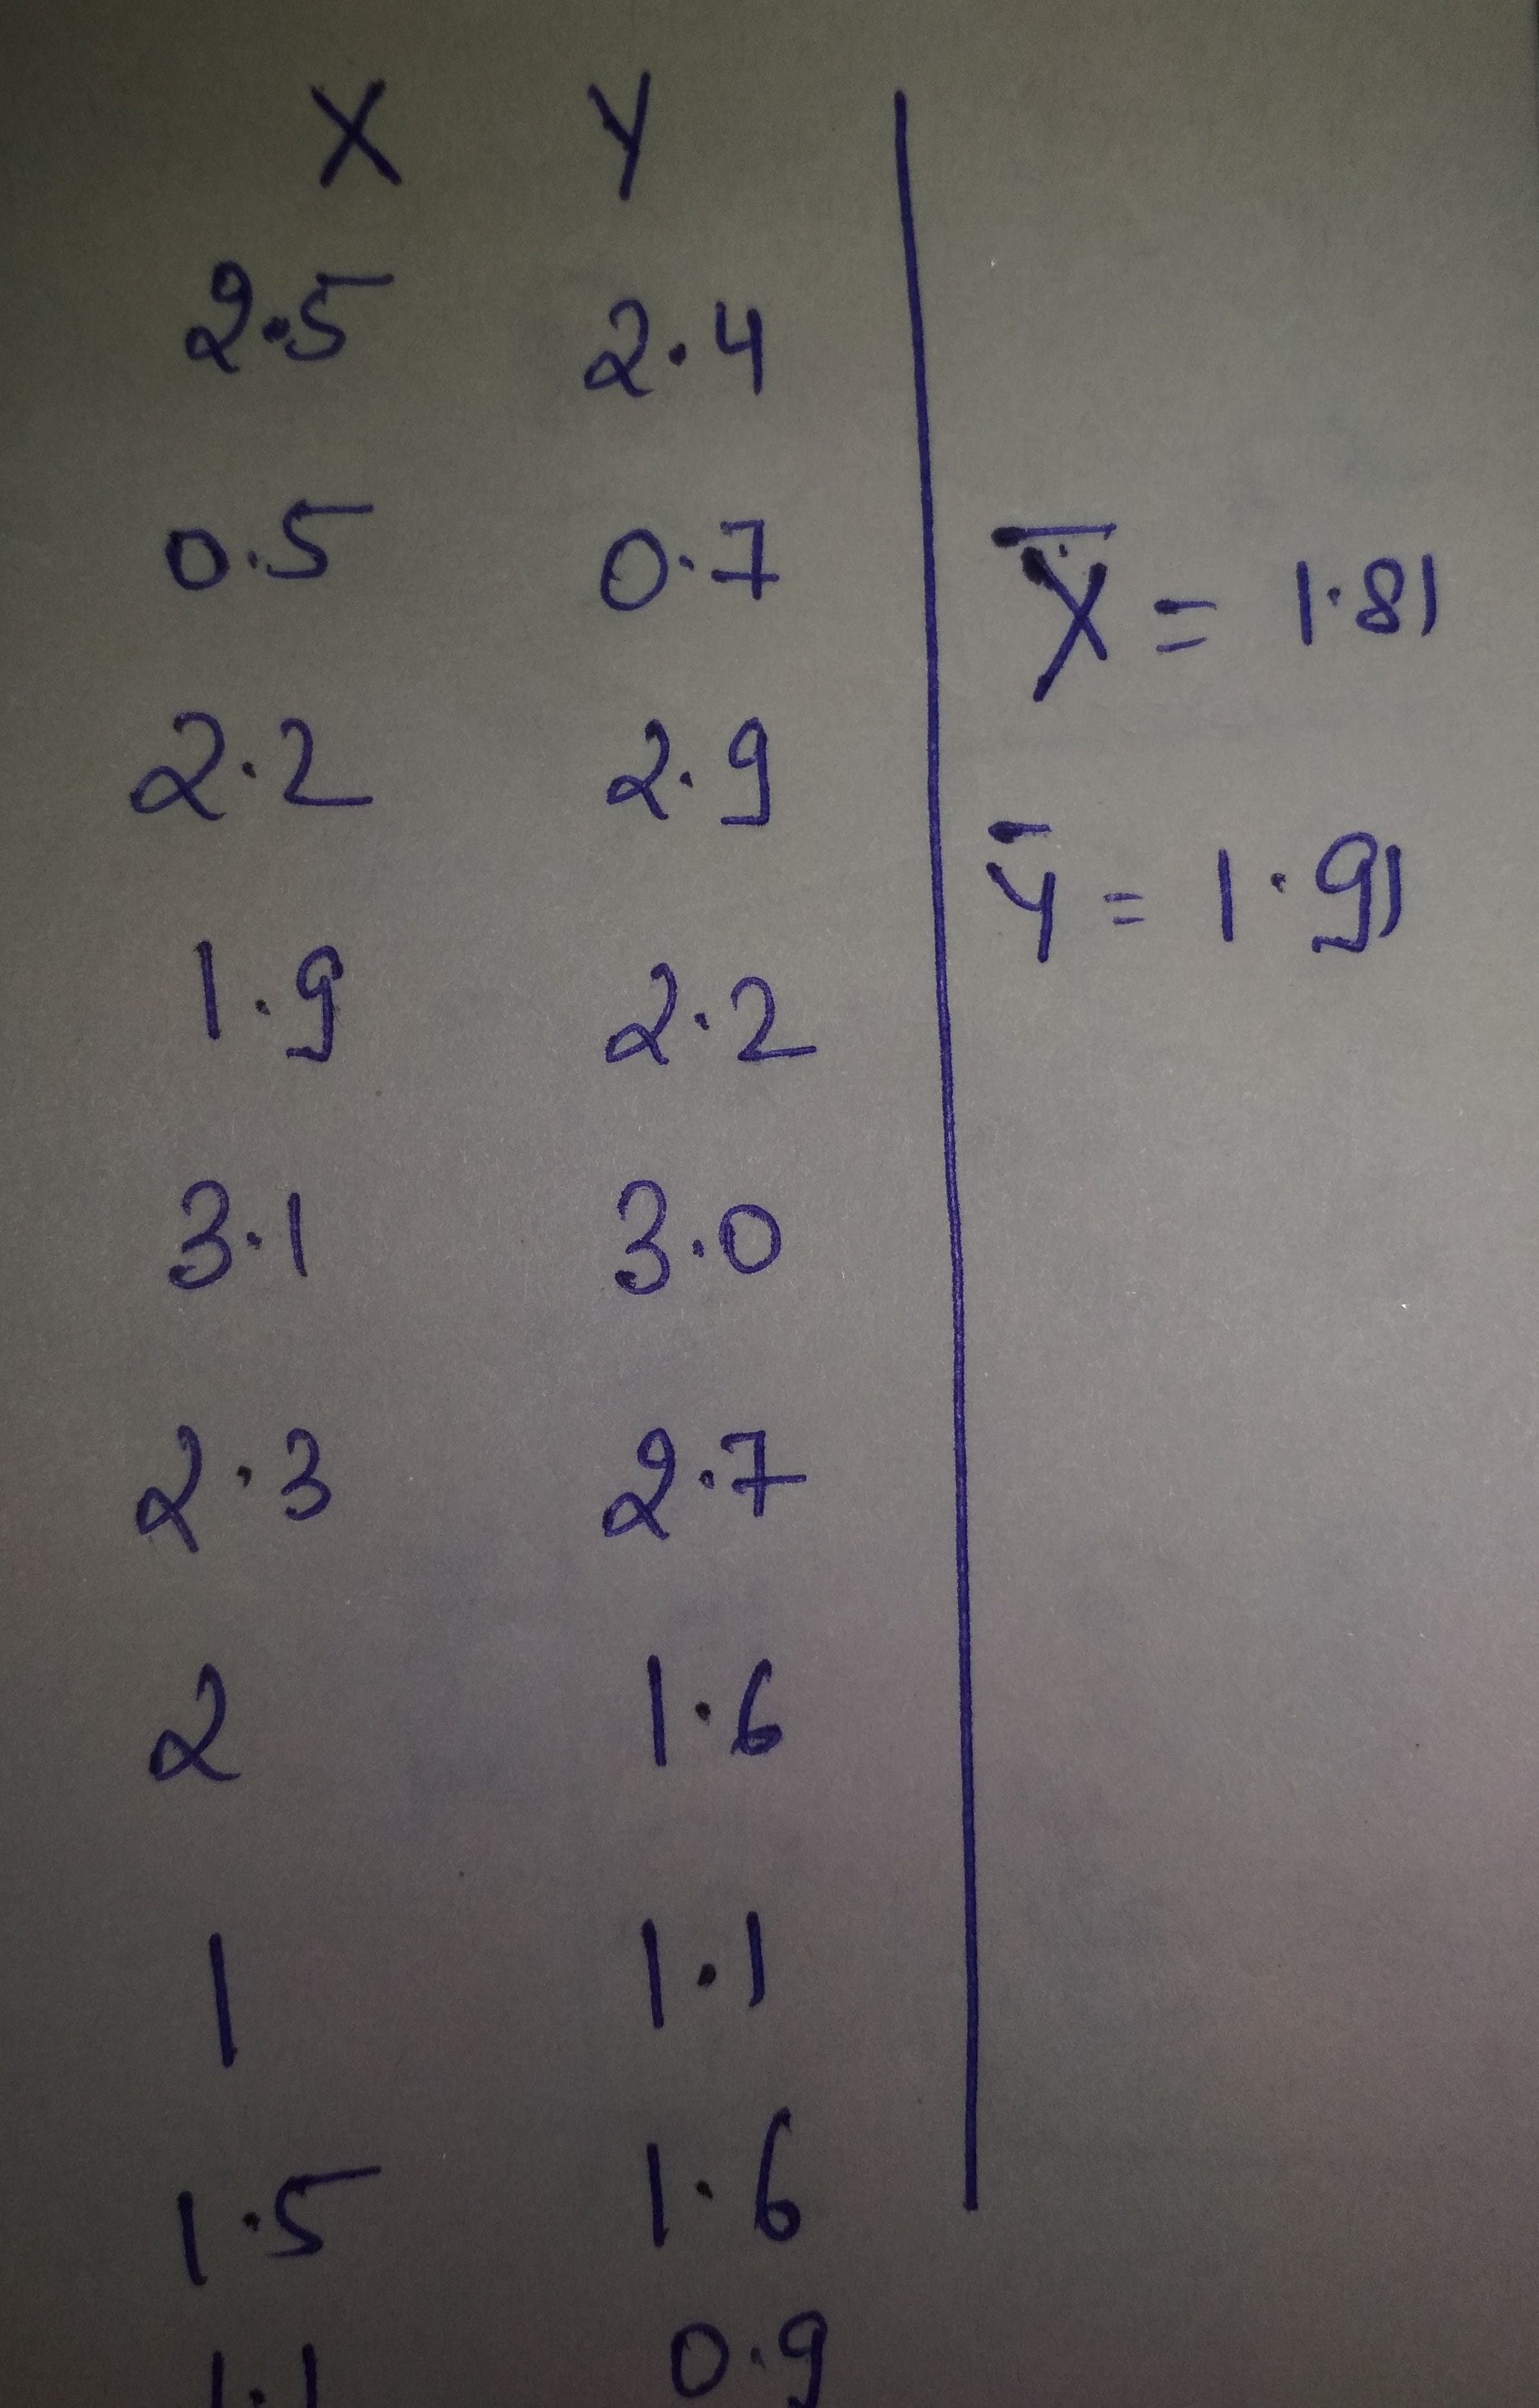 X Y
2.5 2.4
0.5 0.7
X̄ = 1.81
2.2 2.9
Ȳ = 1.91
1.9 2.2
3.1 3.0
2.3 2.7
2 1.6
1 1.1
1.5 1.6
1.1 0.9